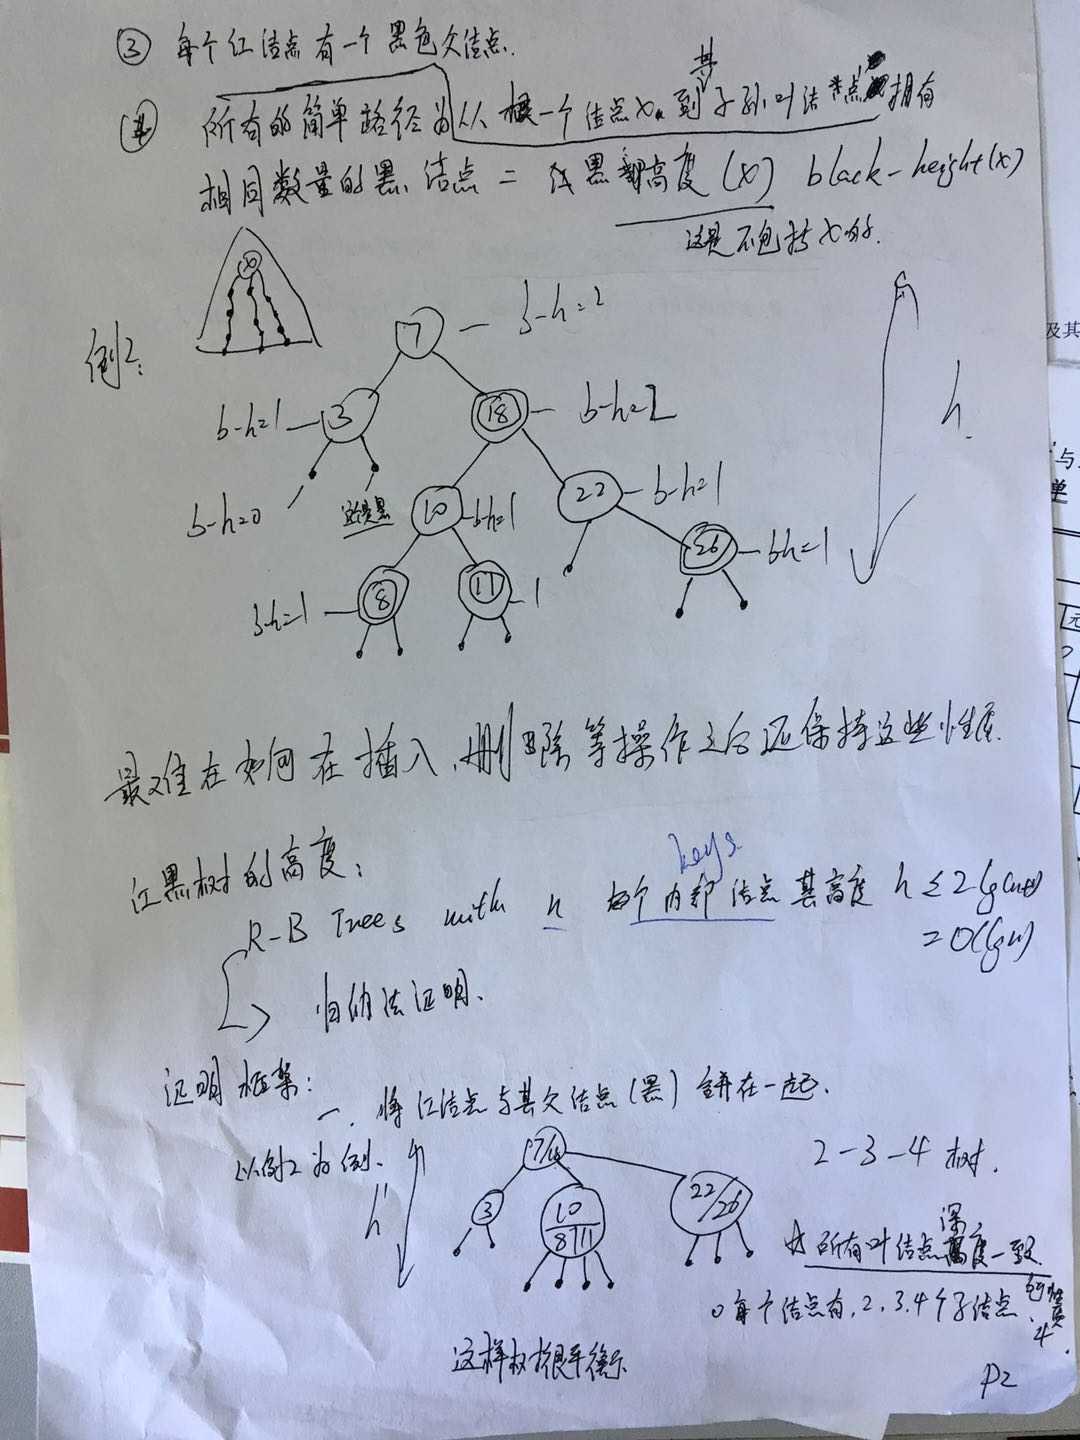 ③ 每个红结点有一个黑色父结点.
④ 所有的简单路径为从一个结点x到其子孙叶结点拥有
相同数量的黑结点 = 黑高度(x) black-height(x)
这是不包括x的.
例2:
x
7 — b-h=2
b-h=1 — 3
18 — b-h=2
b-h=0
这是黑
10 — bh=1
22 — b-h=1
26 — bh=1
b-h=1 — 8
11 — 1
h
最难在如何在插入、删除等操作之后还保持这些性质.
红黑树的高度:
keys
R-B Trees with n 个内部结点其高度 h ≤ 2lg(n+1)
= O(lgn)
归纳法证明.
证明框架:
一. 将红结点与其父结点(黑)合并在一起.
以例2为例.
h'
7/18
3
10
8 11
22/26
2-3-4 树.
所有叶结点深度一致
每个结点有 2,3,4个子结点
性质4.
这样树很平衡
P2